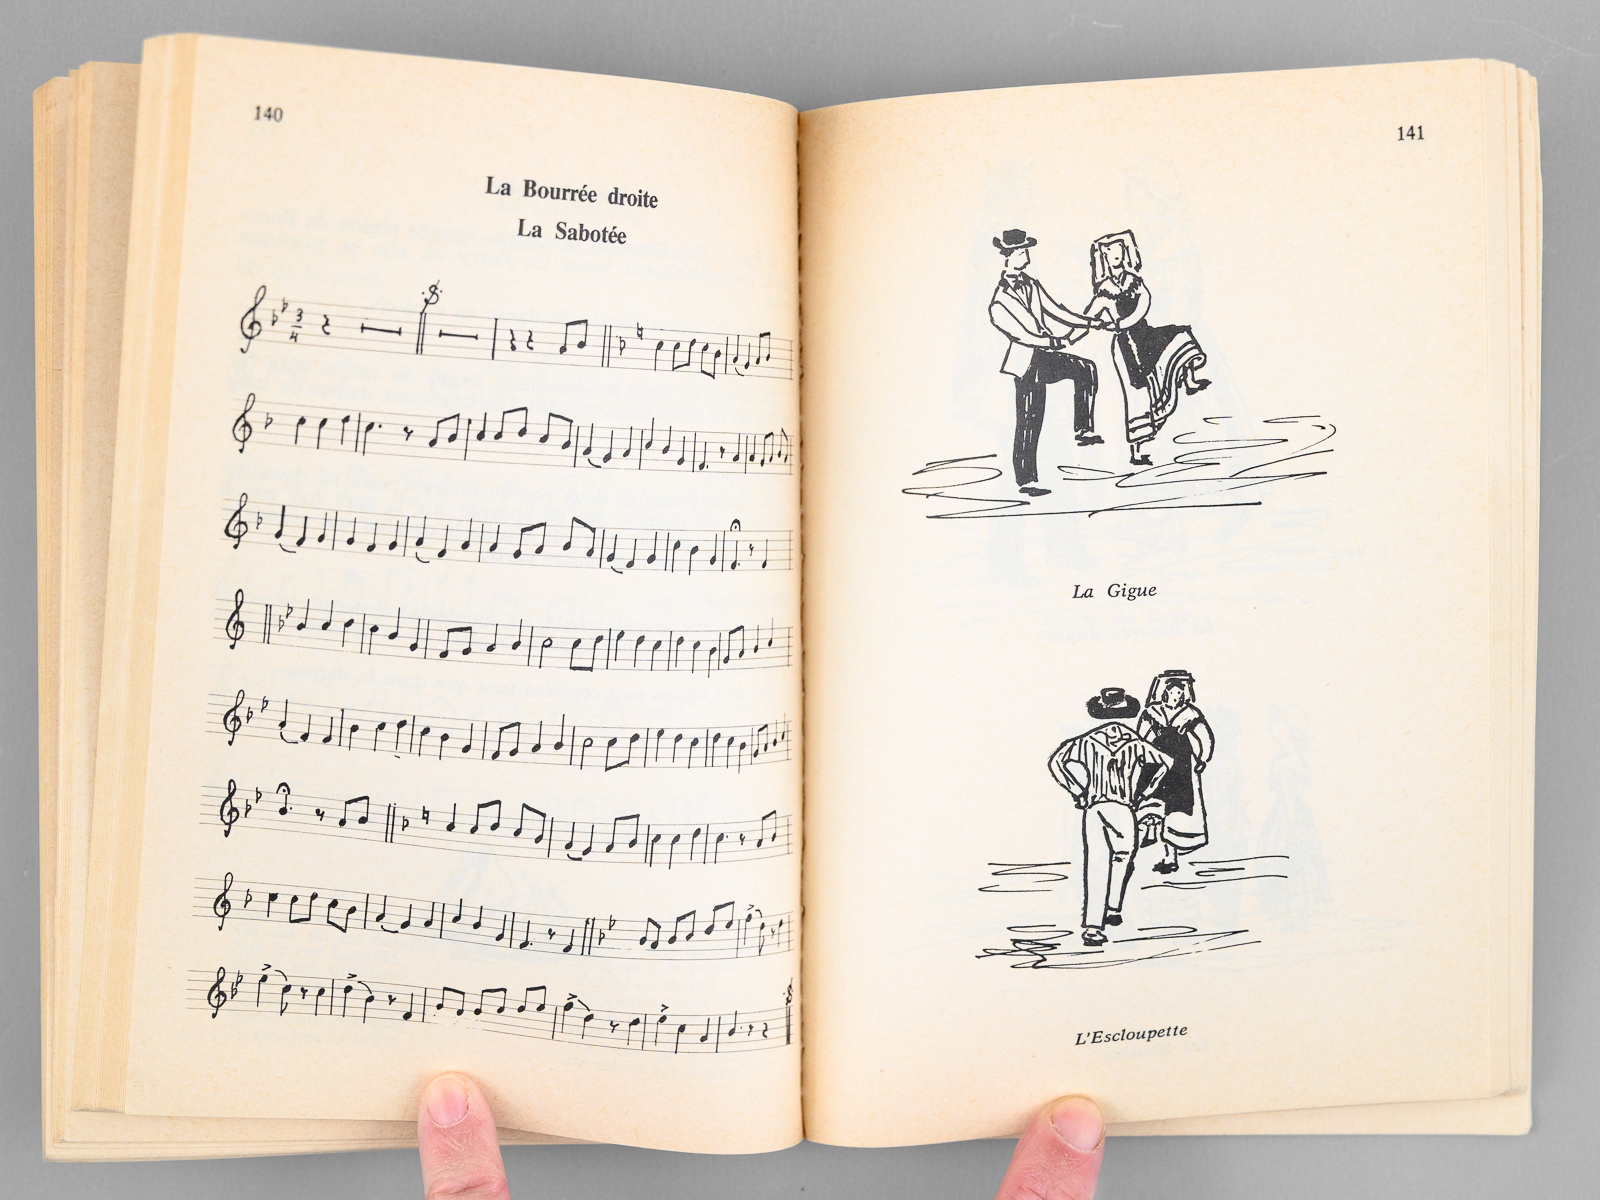 140
La Bourrée droite
La Sabotée
3
4
141
La Gigue
L'Escloupette